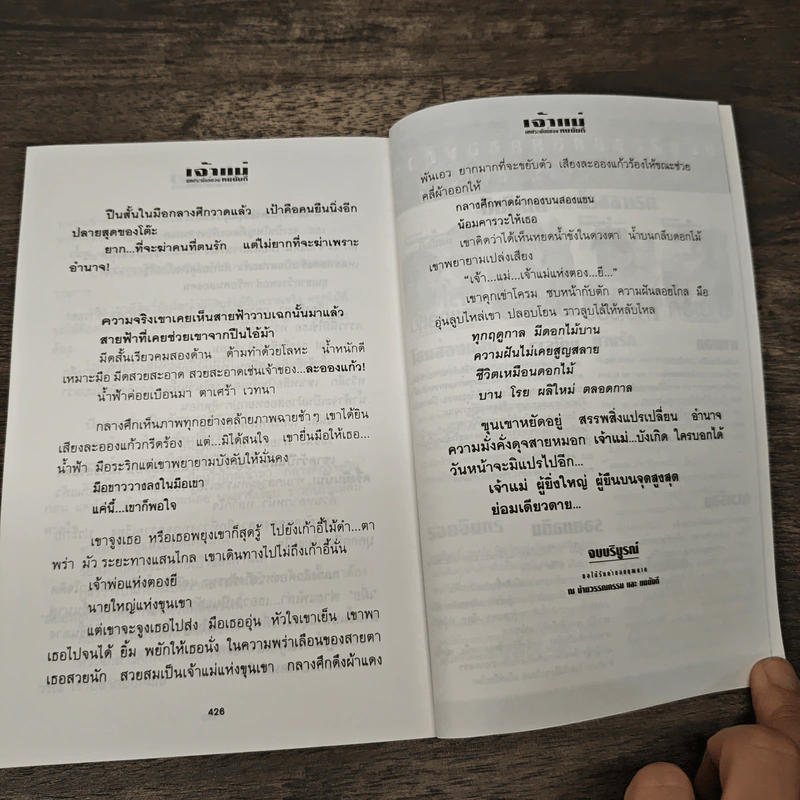 เจ้าแม่
บทประพันธ์ของ ทมยันตี
ปืนสั้นในมือกลางศึกวาดแล้ว เป้าคือคนยืนนิ่งอีก
ปลายสุดของโต๊ะ
ยาก...ที่จะฆ่าคนที่ตนรัก แต่ไม่ยากที่จะฆ่าเพราะ
อำนาจ!
ความจริงเขาเคยเห็นสายฟ้าวาบเฉกนั้นมาแล้ว
สายฟ้าที่เคยช่วยเขาจากปืนไอ้ม้า
มีดสั้นเรียวคมสองด้าน ด้ามทำด้วยโลหะ น้ำหนักดี
เหมาะมือ มีดสวยสะอาด สวยสะอาดเช่นเจ้าของ...ละอองแก้ว!
น้ำฟ้าค่อยเบือนมา ตาเศร้า เวทนา
กลางศึกเห็นภาพทุกอย่างคล้ายภาพฉายช้าๆ เขาได้ยิน
เสียงละอองแก้วกรีดร้อง แต่...มิได้สนใจ เขายื่นมือให้เธอ...
น้ำฟ้า มือระริกแต่เขาพยายามบังคับให้มั่นคง
มือขาววางลงในมือเขา
แค่นี้...เขาก็พอใจ
เขาจูงเธอ หรือเธอพยุงเขาก็สุดรู้ ไปยังเก้าอี้ไม้ดำ...ตา
พร่า มัว ระยะทางแสนไกล เขาเดินทางไปไม่ถึงเก้าอี้นั่น
เจ้าพ่อแห่งตองยี
นายใหญ่แห่งขุนเขา
แต่เขาจะจูงเธอไปส่ง มือเธออุ่น หัวใจเขาเย็น เขาพา
เธอไปจนได้ ยิ้ม พยักให้เธอนั่ง ในความพร่าเลือนของสายตา
เธอสวยนัก สวยสมเป็นเจ้าแม่แห่งขุนเขา กลางศึกดึงผ้าแดง
426
เจ้าแม่
บทประพันธ์ของ ทมยันตี
พันเอว ยากมากที่จะขยับตัว เสียงละอองแก้วร้องไห้ขณะช่วย
คลี่ผ้าออกให้
กลางศึกพาดผ้ากองบนสองแขน
น้อมคารวะให้เธอ
เขาคิดว่าได้เห็นหยดน้ำขังในดวงตา น้ำบนกลีบดอกไม้
เขาพยายามเปล่งเสียง
“เจ้า...แม่...เจ้าแม่แห่งตอง...ยี...”
เขาคุกเข่าโครม ซบหน้ากับตัก ความฝันลอยไกล มือ
อุ่นลูบไหล่เขา ปลอบโยน ราวลูบไล้ให้หลับไหล
ทุกฤดูกาล มีดอกไม้บาน
ความฝันไม่เคยสูญสลาย
ชีวิตเหมือนดอกไม้
บาน โรย ผลิใหม่ ตลอดกาล
ขุนเขาหยัดอยู่ สรรพสิ่งแปรเปลี่ยน อำนาจ
ความมั่งคั่งดุจสายหมอก เจ้าแม่...บังเกิด ใครบอกได้
วันหน้าจะมิแปรไปอีก...
เจ้าแม่ ผู้ยิ่งใหญ่ ผู้ยืนบนจุดสูงสุด
ย่อมเดียวดาย...
จบบริบูรณ์
ณ บ้านวรรณกรรม และ ทมยันตี